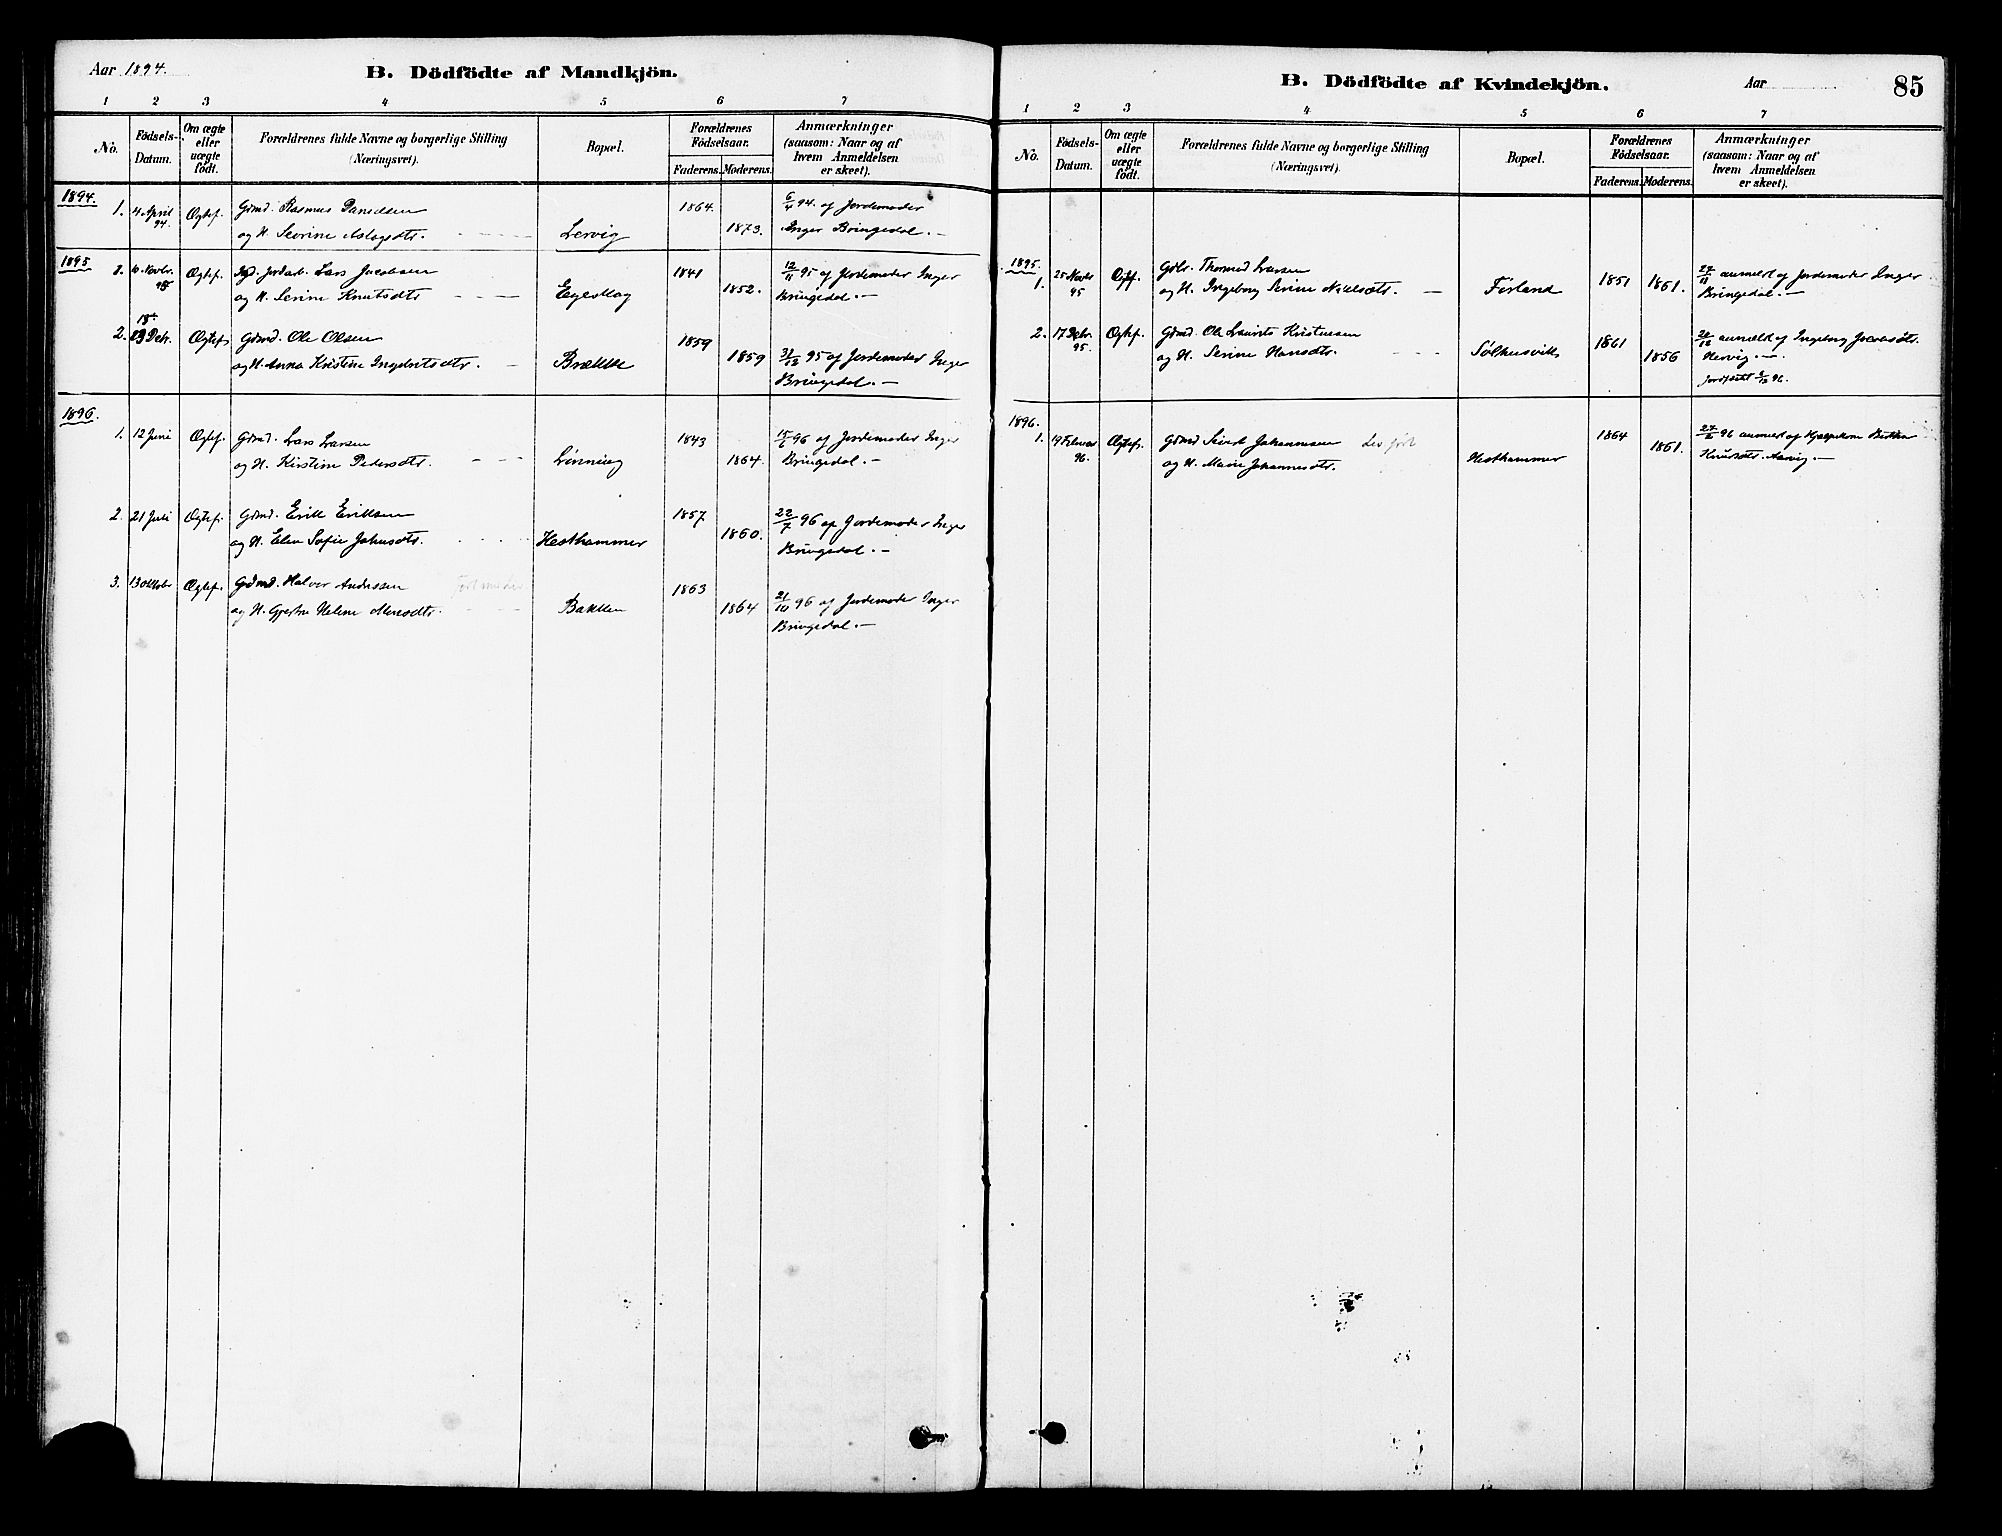 Aar 1894.
B. Dödfödte af Mandkjön.
1 2 3 4 5 6 7
No.
Födsels-Datum.
Om ægte eller uægte födt.
Forældrenes fulde Navne og borgerlige Stilling
(Næringsvei).
Bopæl.
Forældrenes Födselsaar.
Faderens. Moderens.
Anmærkninger
(saasom: Naar og af
hvem Anmeldelsen
er skeet).
1894.
1. 4 April 94. Ægtef. Gdmd. Rasmus 1864. 6/4 94. af Jordemoder
og H. Serine Aslagsdtr. Lervig 1873. Inger Bringedal. —
1895
1. 10 Novbr. 95 Ægtef. Lars Jacobsen 1841 12/11 95 af Jordemoder Inger
og H. Serine Knutsdtr. Egeskog 1852. Bringedal. —
2. Ægtef. Gdmd. Ole Olsen 1859
og H. Anna Kristine Ingebretsdtr. Brække 1859 31/12 95 af Jordemoder Inger
Bringedal. —
1896.
1. 12 Juni Ægtef. Gdmd. Lars Larsen 1843 15/6 96 af Jordemoder Inger
og H. Kirstine Pedersdtr. Lønning 1864. Bringedal. —
2. 21 Juli Ægtef. Gdmd. Erik Eriksen 1857 22/7 96 af Jordemoder Inger
og H. Elen Sofie Johnsdtr. Hesthammer 1860. Bringedal. —
3. 13 Oktobr Ægtef. Grdmd. Halvor Andersen 1863
og H. Helene Bakken 1864 21/10 96 af Jordemoder Inger
Bringedal. —
B. Dödfödte af Kvindekjön.
Aar
85
1 2 3 4 5 6 7
No.
Födsels-Datum.
Om ægte eller uægte födt.
Forældrenes fulde Navne og borgerlige Stilling
(Næringsvei).
Bopæl.
Forældrenes Födselsaar.
Faderens. Moderens.
Anmærkninger
(saasom: Naar og af
hvem Anmeldelsen
er skeet).
1895.
1. 25 Novbr 95 Thormod Larsen 1851 1861. 27/11 anmeldt af Jordemoder Inger
og H. Ingeborg Serine Førland Bringedal. —
2. 17 Dcbr. 95. Ægtef. Gdmd. Ole Laurits Kristensen 1861 anmeldt af Ingeborg
og H. Serine Hansdtr. Sølhusvik 1856
1896.
1. 19 Februar 96. Ægtef. Gdmd Sivert Johannesen 1864 1861. 96 anmeldt af
og H. Johannesdtr. Hesthammer Knutsdtr.